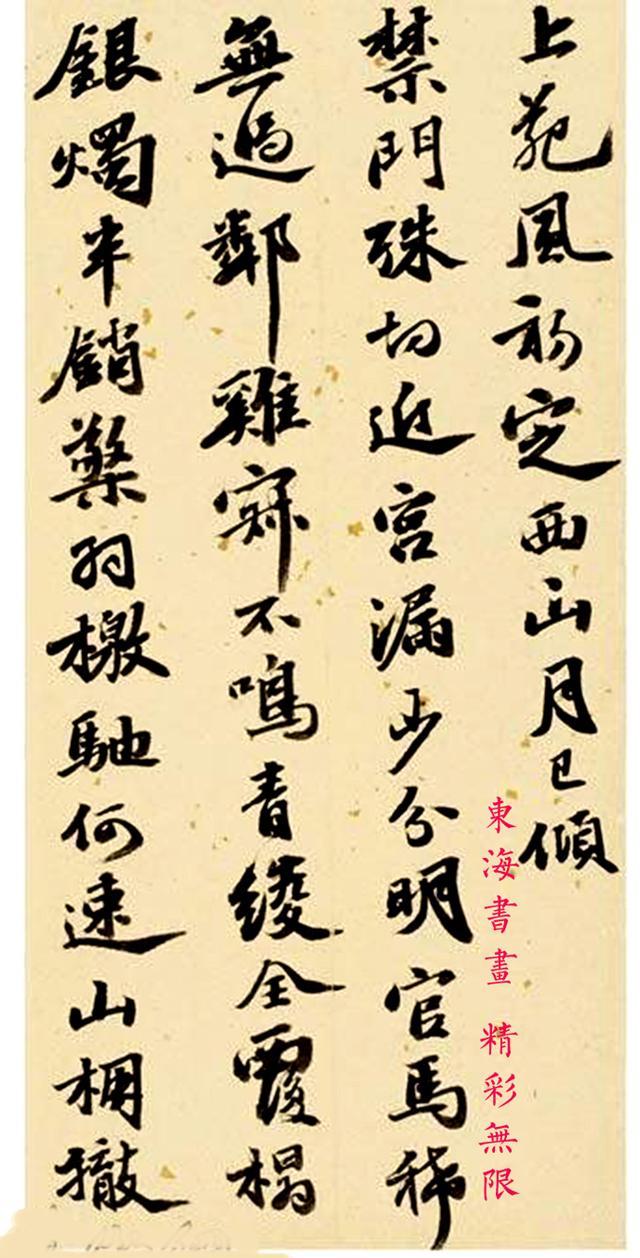 上苑風初定西山月已傾
禁門殊切近宮漏少分明官馬稀
無過鄰雞寂不鳴青綾全覆榻
銀燭半銷檠羽檄馳何速山棚撤
東海書畫 精彩無限